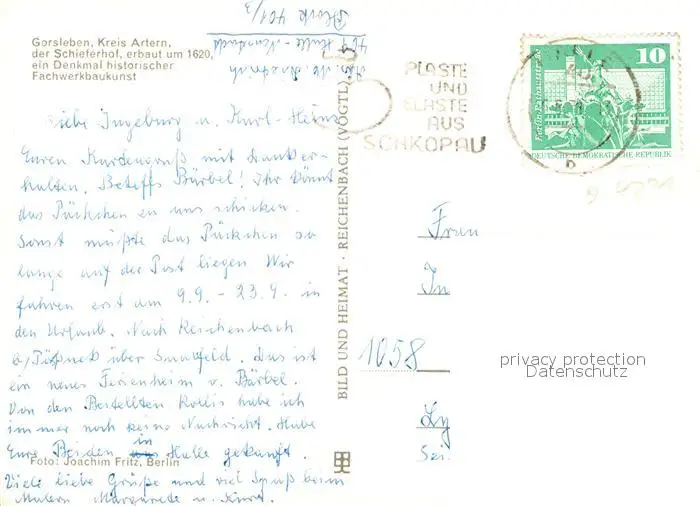 Gorsleben, Kreis Artern,
der Schieferhof, erbaut um 1620,
ein Denkmal historischer
Fachwerkbaukunst
Block 401/3
PLASTE
UND
ELASTE
AUS
SCHKOPAU
10
DEUTSCHE DEMOKRATISCHE REPUBLIK
Liebe Ingeburg u. Karl-Heinz
Euren Kardengruß mit Danker-
halten. Betreffs Bärbel! Ihr könnt
das Päckchen zu uns schicken.
Sonst müßte das Päckchen so
lange auf der Post liegen. Wir
fahren erst am 9.9. - 23.9. in
den Urlaub. Nach Reichenbach
b/Pößneck über Saalfeld. Das ist
ein neues Ferienheim v. Bärbel.
Von den Bestellten Rollis habe ich
immer noch keine Nachricht. Habe
Eure Beiden in Halle gekauft.
Viele liebe Grüße und viel Spaß beim
Malern Margarete u. Kurt.
Foto: Joachim Fritz, Berlin
BILD UND HEIMAT · REICHENBACH (VOGTL.)
1058
privacy protection
Datenschutz